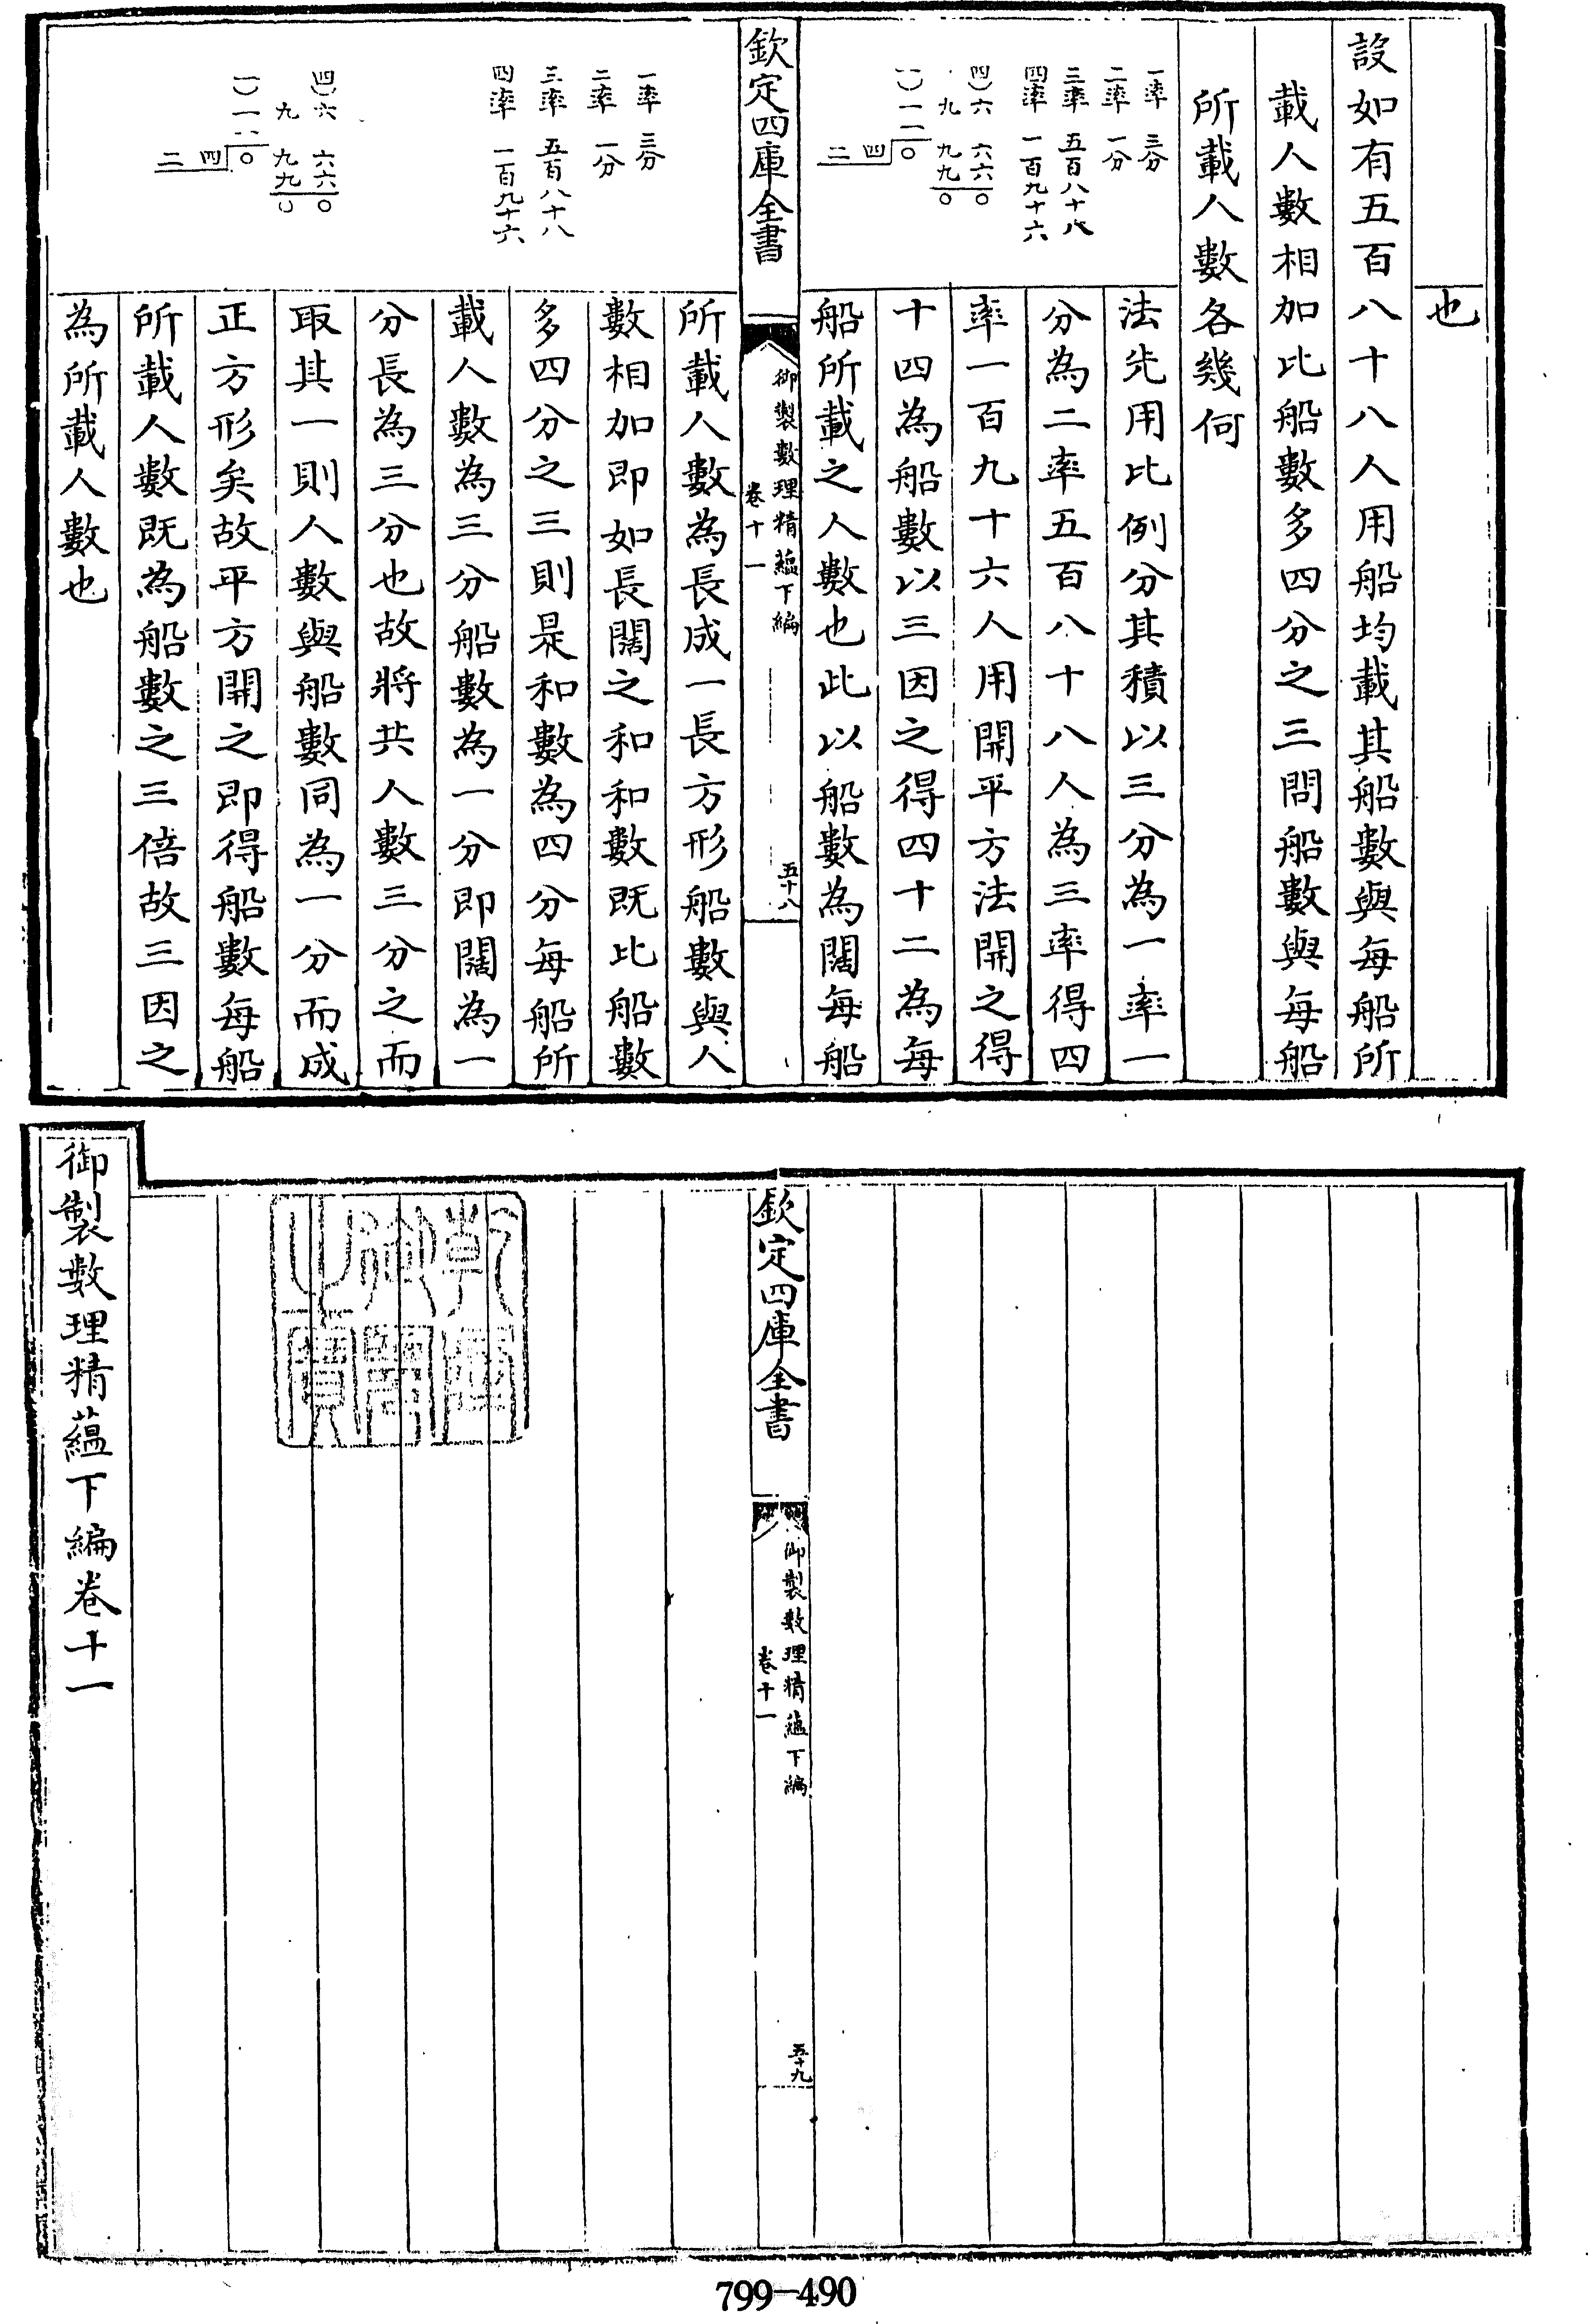 也
設如有五百八十八人用船均載其船數與每船所
載人數相加比船數多四分之三問船數與每船
所載人數各幾何
一率　三分
二率　一分
三率　五百八十八
四率　一百九十六
法先用比例分其積以三分為一率一
分為二率五百八十八人為三率得四
率一百九十六人用開平方法開之得
十四為船數以三因之得四十二為每
船所載之人數也此以船數為闊每船
欽定四庫全書
御製數理精蘊下編
卷十一
五十八
一率　三分
二率　一分
三率　五百八十八
四率　一百九十六
所載人數為長成一長方形船數與人
數相加即如長闊之和和數既比船數
多四分之三則是和數為四分每船所
載人數為三分船數為一分即闊為一
分長為三分也故將共人數三分之而
取其一則人數與船數同為一分而成
正方形矣故平方開之即得船數每船
所載人數既為船數之三倍故三因之
為所載人數也
欽定四庫全書
御製數理精蘊下編
卷十一
五十九
御製數理精蘊下編卷十一
799-490